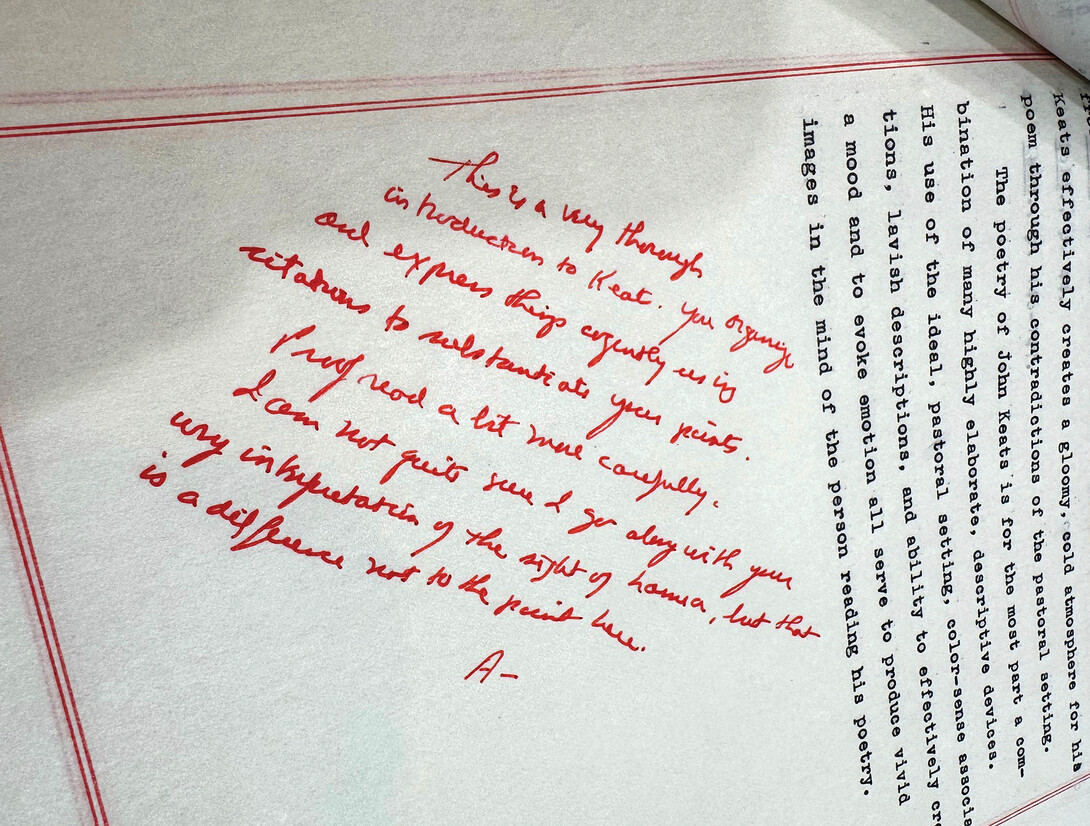 Keats effectively creates a gloomy, cold atmosphere for his
poem through his contradictions of the pastoral setting.
The poetry of John Keats is for the most part a com-
bination of many highly elaborate, descriptive devices.
His use of the ideal, pastoral setting, color-sense associa
tions, lavish descriptions, and ability to effectively cre
a mood and to evoke emotion all serve to produce vivid
images in the mind of the person reading his poetry.
This is a very thorough
introduction to Keat. You organize
and express things cogently using
citations to substantiate your points.
Proof read a bit more carefully.
I am not quite sure I go along with your
interpretation of the sight of, but that
is a difference not to the point here.
A-